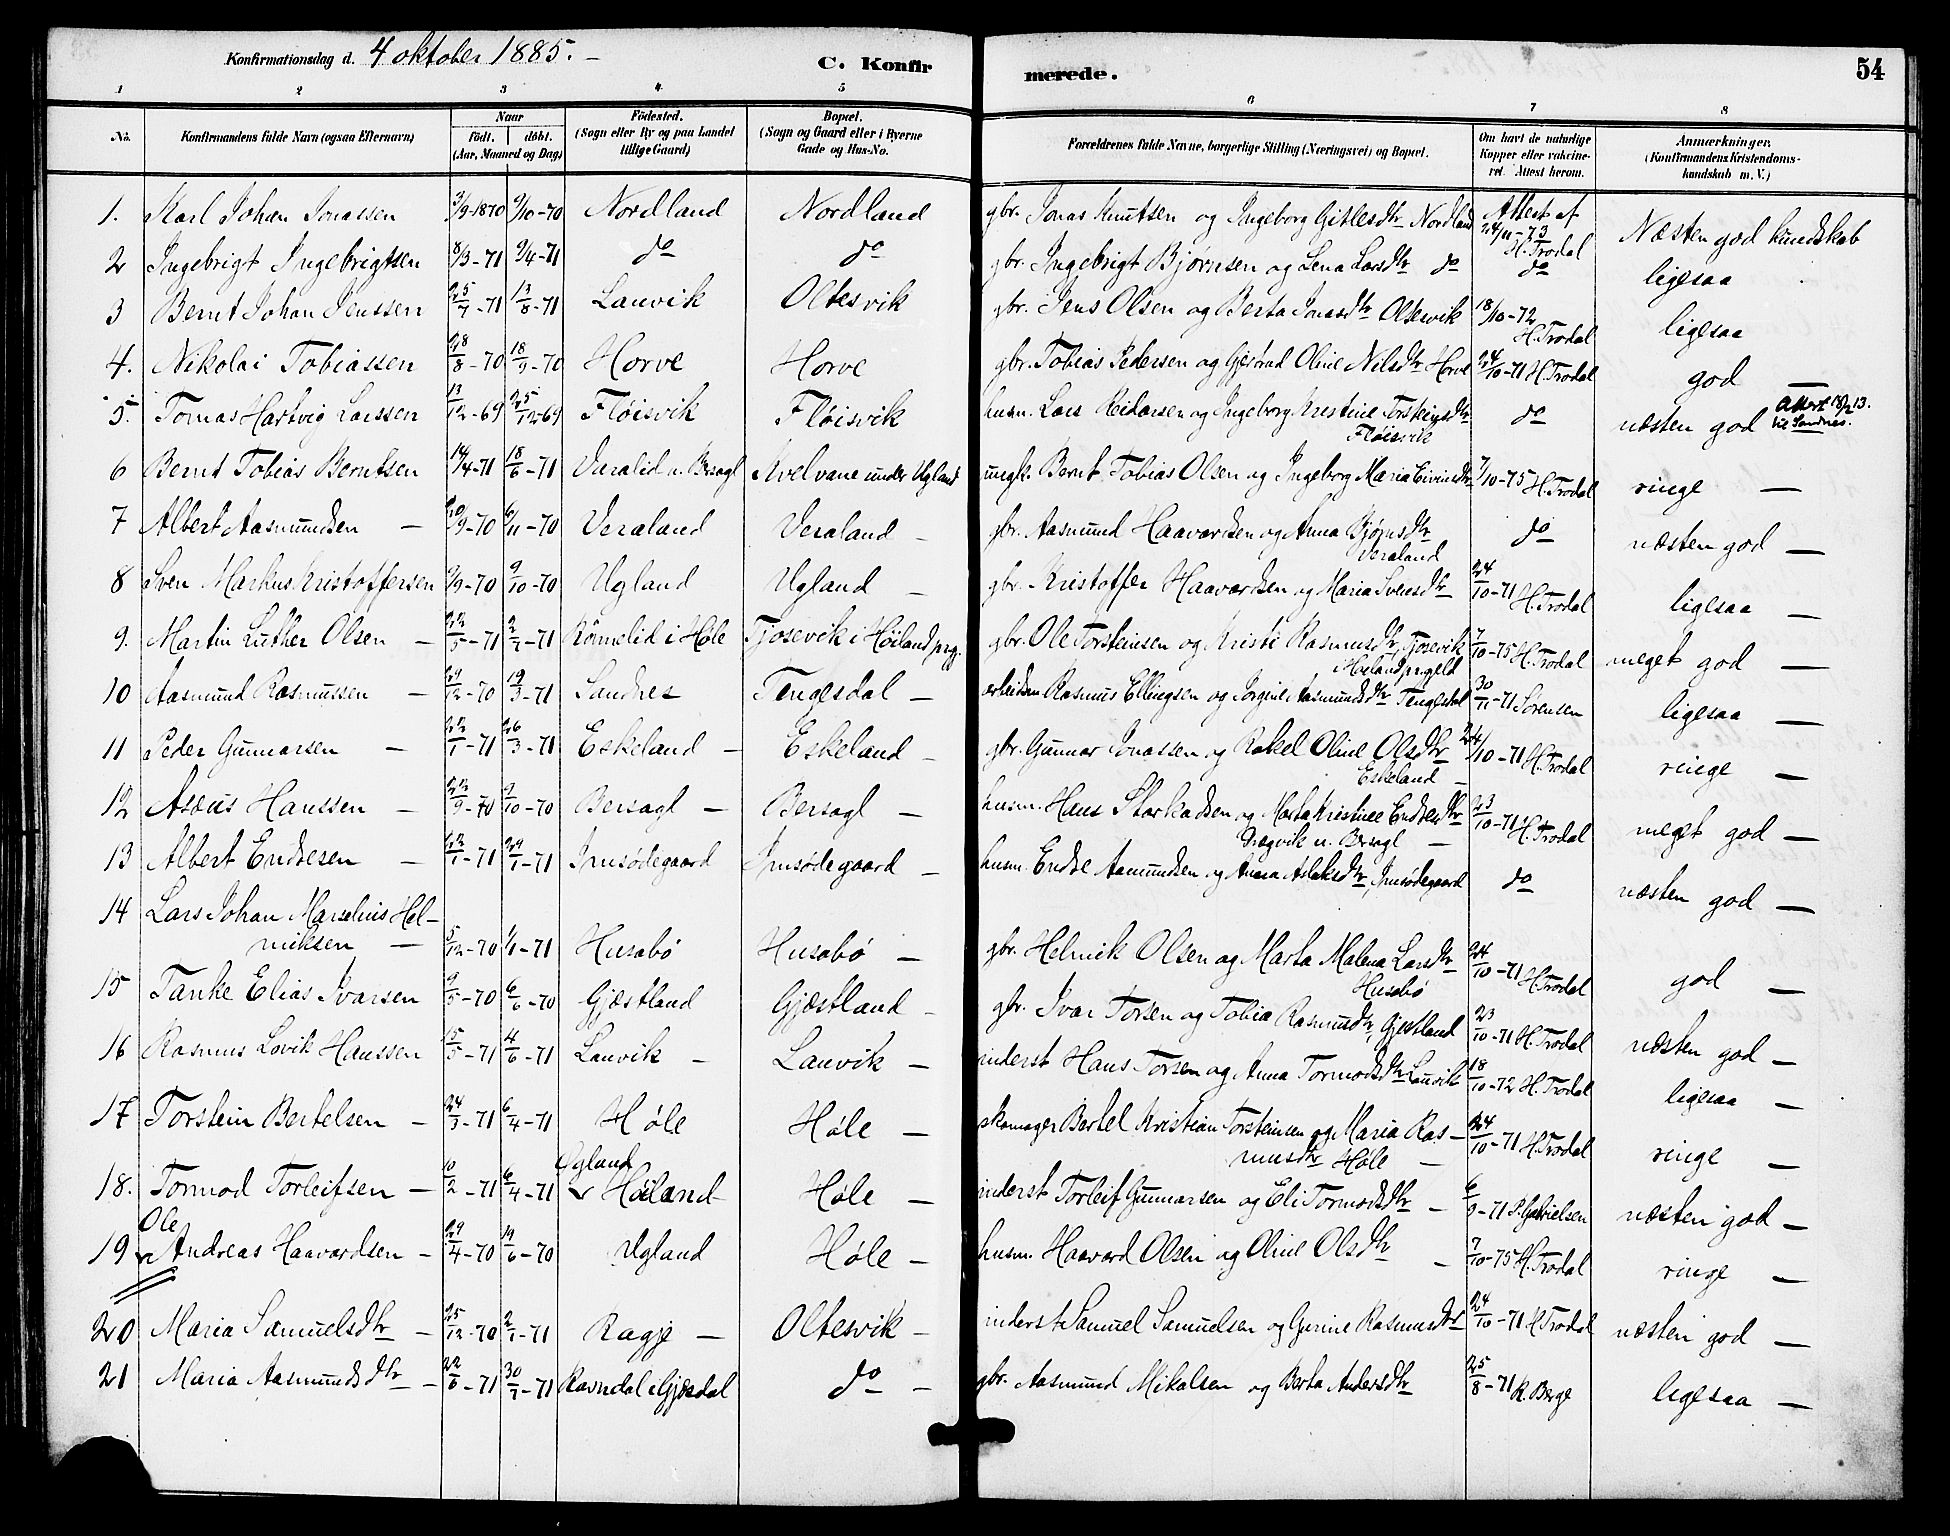 Konfirmationsdag d. 4 oktober 1885. –
C. Konfirmerede.
54
1 2 3 4 5 6 7 8
No. Konfirmandens fulde Navn (ogsaa Efternavn) Naar født. døbt. (Aar, Maaned og Dag) Fødested. (Sogn eller By og paa Landet tillige Gaard) Bopæl. (Sogn og Gaard eller i Byerne Gade og Hus-No. Forældrenes fulde Navne, borgerlige Stilling (Næringsvei) og Bopæl. Om havt de naturlige Kopper eller vakcineret. Attest herom. Anmærkninger. (Konfirmandens Kristendomskundskab m. V.)
1. Karl Johan Jonassen 3/9-1870 9/10-70 Nordland Nordland gbr. Jonas Knutsen og Ingeborg Gitlesdtr Nordland Attest af 24/11-73 H. Trodal Næsten god kundskab
2 Ingebrigt Ingebrigtsen 8/3-71 9/4-71 do do gbr. Ingebrigt Bjørnsen og Lena Larsdtr do do ligesaa
3 Bernt Johan Jenssen 25/7-71 13/8-71 Lauvik Oltesvik gbr. Jens Olsen og Berta Jonasdtr Oltesvik 18/10-72 H. Trodal ligesaa
4. Nikolai Tobiassen 28/8-70 18/9-70 Horve Horve gbr. Tobias Pedersen og Gjertrud Oline Nilsdtr Horve 24/10-71 H. Trodal god –
5. Tomas Hartvig Larssen 13/12-69 25/12-69 Fløisvik Fløisvik husm. Lars Reidarsen og Ingeborg Kristine Torsteinsdtr Fløisvik do næsten god Attest 18/2 13. til Sandnes.
6 Bernt Tobias Berntsen 14/4-71 18/6-71 Veralid u. Bersagl Kvelvane under Ugland ungk. Bernt Tobias Olsen og Ingeborg Maria Eivinsdtr 7/10-75 H. Trodal ringe –
7 Albert Aasmundsen – 20/9-70 6/11-70 Veraland Veraland – gbr. Aasmund Haavardsen og Anna Bjørnsdtr Veraland do næsten god –
8 Sven Markus Kristoffersen 9/9-70 9/10-70 Ugland Ugland – gbr. Kristoffer Haavardsen og Maria Svensdtr 24/10-71 H. Trodal ligesaa –
9. Martin Luther Olsen – 22/5-71 2/7-71 Rømelid i Høle Tjosevik i Høiland prg. gbr. Ole Torsteinsen og Kristi Rasmusdtr, Tjosevik i Høiland prgeld 7/10-75 H. Trodal meget god –
10 Aasmund Rasmussen – 29/12-70 19/3-71 Sandnes Tengesdal – arbeidsm. Rasmus Ellingsen og Jorgine Aasmundsdtr Tengesdal 30/11-71 Sørensen ligesaa –
11 Peder Gunnarsen – 22/1-71 26/3-71 Eskeland – Eskeland – gbr. Gunnar Jonassen og Rakel Oline Olsdtr Eskeland – 24/10-71 H. Trodal ringe –
12 Asæus Hanssen – 22/9-70 9/10-70 Bersagl – Bersagl – husm. Hans Starkadsen og Marta Kristine Endresdtr Dragvik u. Bersagl – 23/10-71 H. Trodal meget god –
13 Albert Endresen – 22/1-71 29/1-71 Imsødegaard Imsødegaard – husm. Endre Aamundsen og Anna Aslaksdtr, Imsødegaard do næsten god –
14 Lars Johan Marselius Helmiksen – 5/12-70 1/1-71 Husabø Husabø – gbr. Helmik Olsen og Marta Malena Larsdtr Husabø 24/10-71 H. Trodal god –
15 Tanke Elias Ivarsen 9/5-70 6/6-70 Gjæstland Gjæstland – gbr. Ivar Torsen og Tobia Rasmusdtr, Gjestland 23/10-71 H. Trodal næsten god –
16 Rasmus Lovik Hanssen 15/5-71 4/6-71 Lauvik – Lauvik – inderst Hans Torsen og Anna Tormodsdtr Lauvik 18/10-72 H. Trodal ligesaa –
17 Torstein Bertelsen – 24/3-71 6/4-71 Høle Høle – skomager Bertel Kristian Torsteinsen og Maria Rasmusdtr Høle – 24/10-71 H. Trodal ringe –
18. Tormod Torleifsen – 10/2-71 6/4-71 Øgland v Høiland Høle – inderst Torleif Gunnarsen og Eli Tormodsdtr – 6/9-71 P. Gabrielsen næsten god –
19 Ole v Andreas Haavardsen – 29/4-70 19/6-70 Ugland Høle – husm. Haavard Olsen og Oline Olsdtr – 7/10-75 H. Trodal ringe –
20 Maria Samuelsdtr – 25/12-70 2/1-71 Ragje – Oltesvik – inderst Samuel Samuelsen og Gurine Rasmusdtr 24/10-71 H. Trodal næsten god –
21 Maria Aasmundsdtr – 22/6-71 30/7-71 Ravndal i Gjæsdal do – gbr. Aasmund Mikalsen og Berta Andersdtr 25/8-71 K. Berge ligesaa –